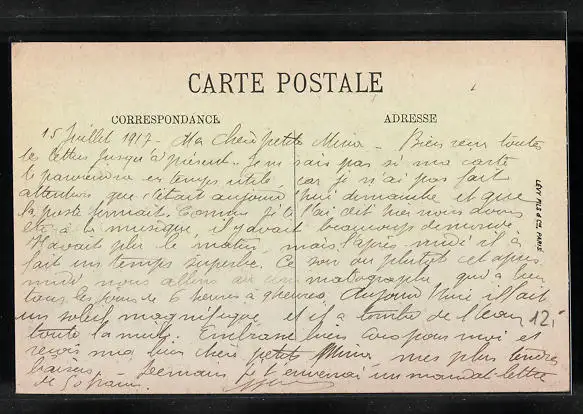 CARTE POSTALE
CORRESPONDANCE
ADRESSE
15 Juillet 1917 - Ma chère petite Mina - Bien reçu toutes
tes lettres jusqu'à présent. Je ne sais pas si ma carte
te parviendra en temps utile, car je n'ai pas fait
attention que c'était aujourd'hui dimanche et que
la poste fermait. Comme je te l'ai dit hier nous avons
été à la musique, il y avait beaucoup de monde.
Il avait plu le matin mais l'après midi il a
fait un temps superbe. Ce soir ou plutôt cet après
midi nous allons au cinématographe qui a lieu
tous les jours de 6 heures à 9 heures. Aujourd'hui il fait
un soleil magnifique et il a tombé de l'eau
toute la nuit. Embrasse bien pour moi et
reçois ma bien chère petite Mina mes plus tendres
baisers. - Demain je t'enverrai un mandat-lettre
de 50 francs.
LÉVY FILS & Cie, PARIS
12,-